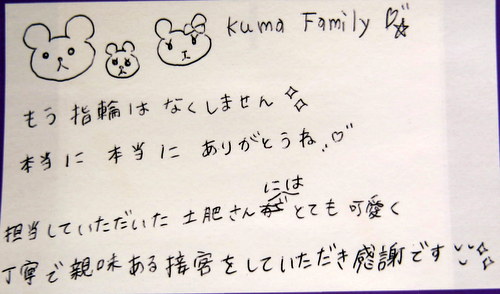 Kuma Family
もう指輪はなくしません
本当に 本当に ありがとうね..
担当していただいた 土肥さんには とても 可愛く
丁寧で親味ある接客をしていただき感謝です